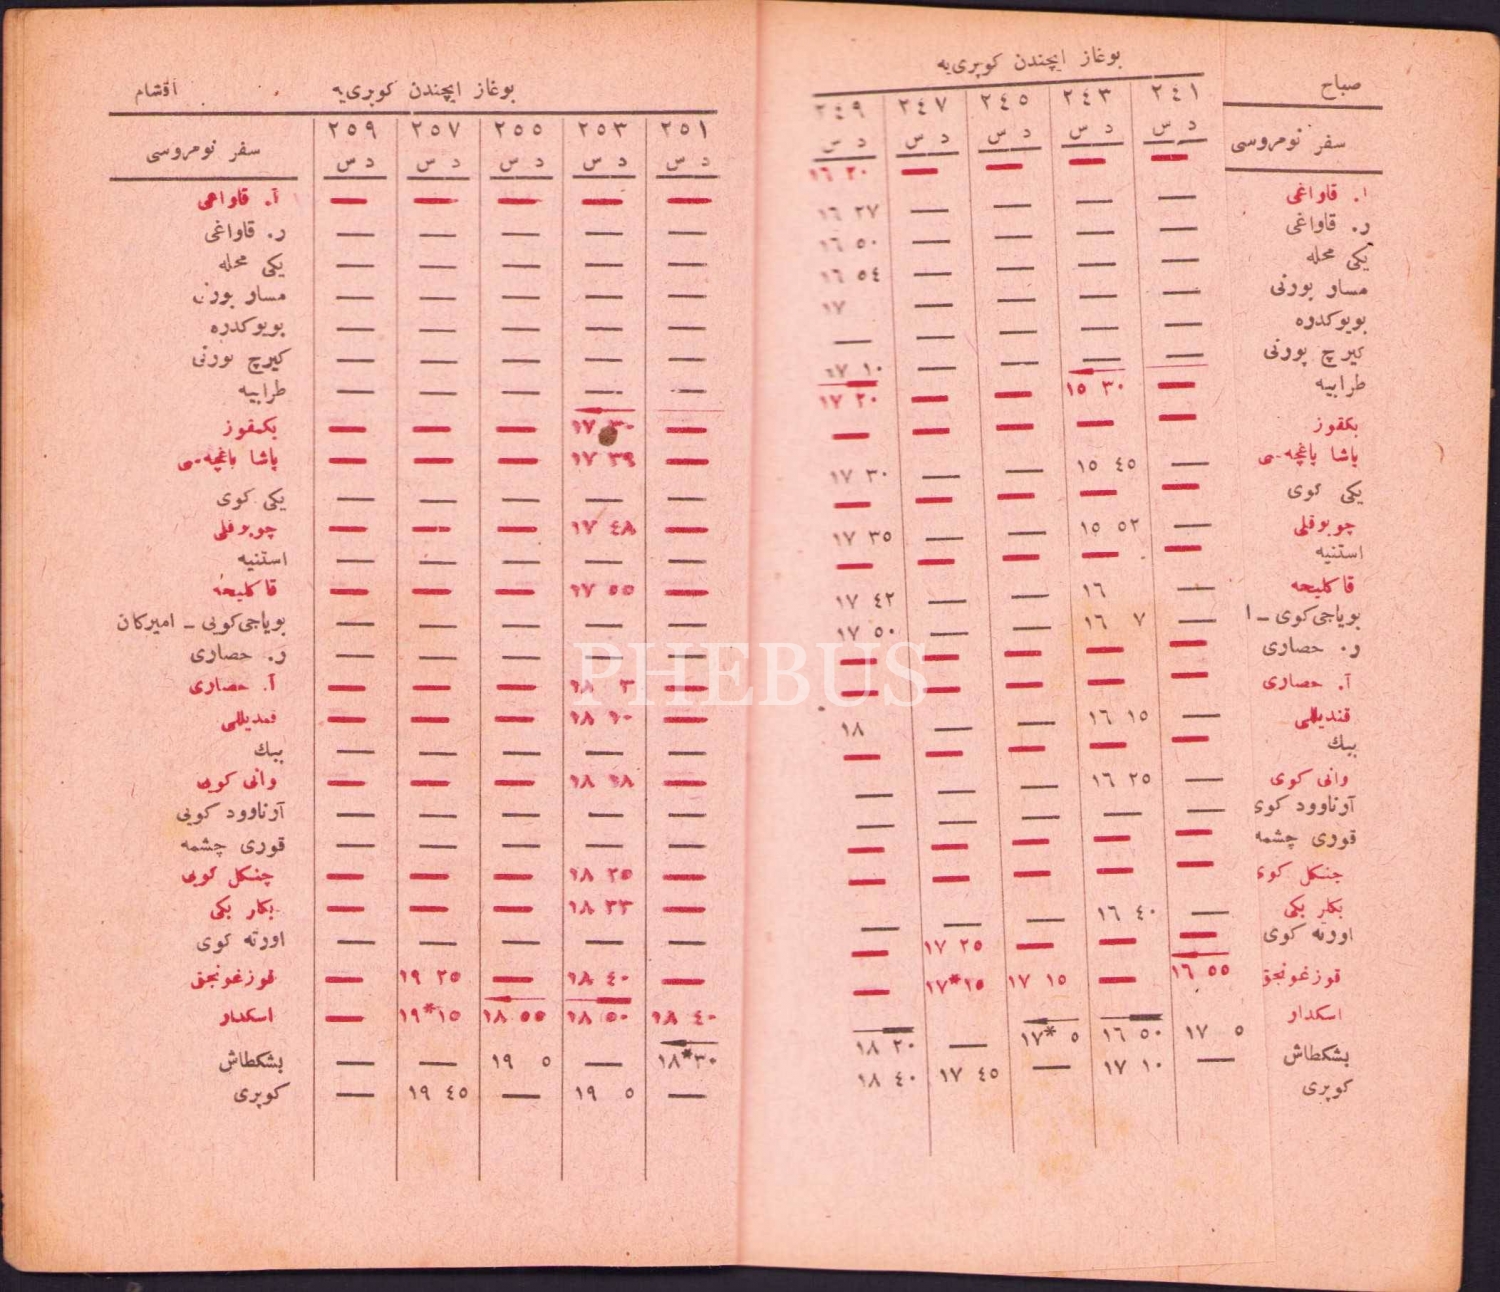 بوغاز ایچندن کوپری‌یه
صباح
٢٤٩ ٢٤٧ ٢٤٥ ٢٤٣ ٢٤١
سفر نومروسی
د س د س د س د س د س
ا. قاواغی — — — — ١٦ ٢٠
ر. قاواغی — — — — ١٦ ٢٧
یکی محله — — — — ١٦ ٥٠
مساو بورنی — — — — ١٦ ٥٤
بویوکدره — — — — ١٧
کیرچ بورنی — — — — —
طرابیه — — — — ١٧ ١٠
بکقوز — ١٥ ٣٠ — — ١٧ ٢٠
پاشا باغچه‌سی — — — — —
یکی کوی — ١٥ ٤٥ — — ١٧ ٣٠
چوبوقلی — — — — —
استنیه — ١٥ ٥٢ — — ١٧ ٣٥
قاکلیجه — — — — —
بویاجی‌کوی ـ ا — ١٦ — — ١٧ ٤٢
ر. حصاری — ١٦ ٧ — — ١٧ ٥٠
آ. حصاری — — — — —
قندیللی — — — — —
ببك — ١٦ ١٥ — — ١٨
وانی کوی — — — — —
آرناوود کوی — ١٦ ٢٥ — — —
قوری چشمه — — — — —
چنکل کوی — — — — —
بکلر بکی — — — — —
اورته کوی — ١٦ ٤٠ — — —
قوزغونجق — — — ١٧ ٢٥ —
اسکدار ١٦ ٥٥ — ١٧ ١٥ ١٧*١٥ —
بشکطاش ١٧ ٥ ١٦ ٥٠ ١٧* ٥ — ١٨ ٢٠
کوپری — ١٧ ١٠ — ١٧ ٤٥ ١٨ ٤٠
بوغاز ایچندن کوپری‌یه
آقشام
٢٥٩ ٢٥٧ ٢٥٥ ٢٥٣ ٢٥١
سفر نومروسی
د س د س د س د س د س
آ. قاواغی — — — — —
ر. قاواغی — — — — —
یکی محله — — — — —
مساو بورنی — — — — —
بویوکدره — — — — —
کیرچ بورنی — — — — —
طرابیه — — — — —
بکقوز — ١٧ ٣٠ — — —
پاشا باغچه‌سی — ١٧ ٣٩ — — —
یکی کوی — — — — —
چوبوقلی — ١٧ ٤٨ — — —
استنیه — — — — —
قاکلیجه — ١٧ ٥٥ — — —
بویاجی‌کویی ـ امیرکان — — — — —
ر. حصاری — — — — —
آ. حصاری — ١٨ ٣ — — —
قندیللی — ١٨ ١٠ — — —
ببك — — — — —
وانی کویی — ١٨ ١٨ — — —
آرناوود کویی — — — — —
قوری چشمه — — — — —
چنکل کویی — ١٨ ٢٥ — — —
بکلر بکی — ١٨ ٣٣ — — —
اورته کوی — — — — —
قوزغونجق — ١٨ ٤٠ — ١٩ ٢٥ —
اسکدار ١٨ ٤٠ ١٨ ٥٠ ١٨ ٥٥ ١٩*١٥ —
بشکطاش ١٨*٣٠ — ١٩ ٥ — —
کوپری — ١٩ ٥ — ١٩ ٤٥ —
PHEBUS